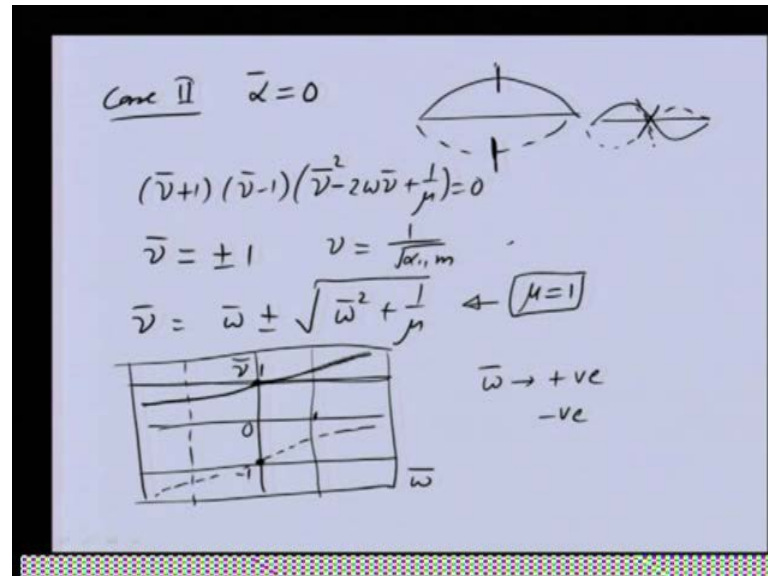 Case II \bar{α} = 0
(\bar{ν}+1) (\bar{ν}-1) (\bar{ν}^2 - 2ω\bar{ν} + \frac{1}{μ}) = 0
\bar{ν} = ± 1 ν = \frac{1}{\sqrt{α_{11} m}}
\bar{ν} = \bar{ω} ± \sqrt{\bar{ω}^2 + \frac{1}{μ}} ← μ=1
\bar{ν} 1
\bar{ω} → +ve
-ve
0
-1
\bar{ω}